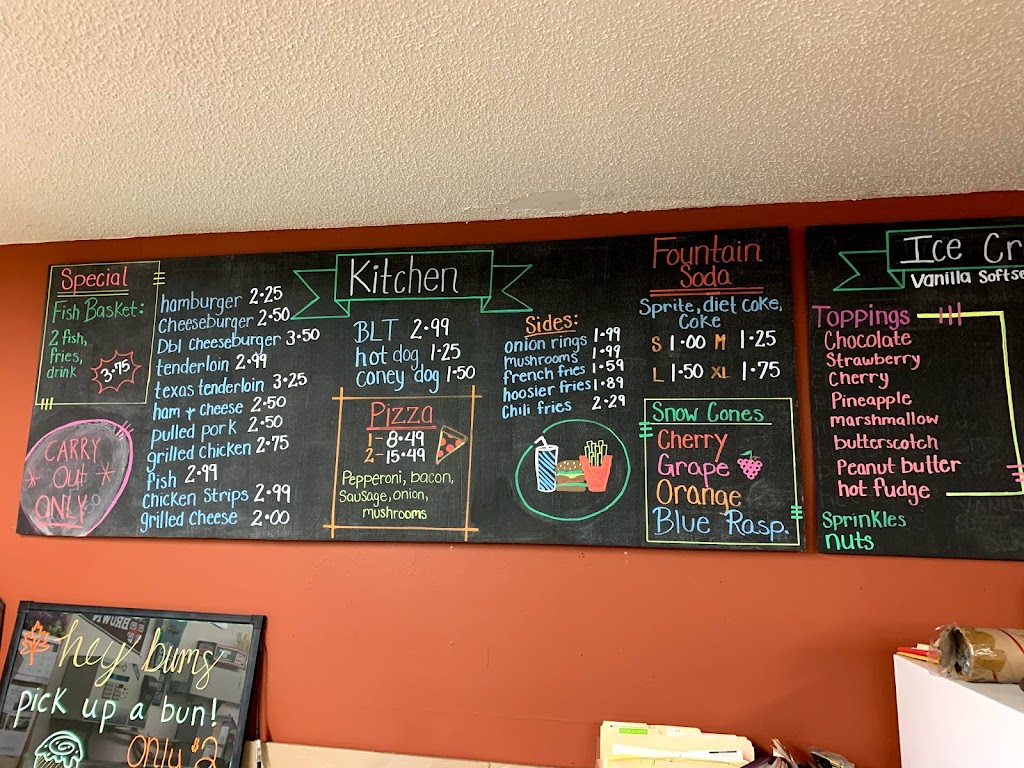 Special
Fish Basket:
2 fish,
fries,
drink
3.75
CARRY
OUT
ONLY
Kitchen
hamburger 2.25
Cheeseburger 2.50
Dbl cheeseburger 3.50
tenderloin 2.99
texas tenderloin 3.25
ham + cheese 2.50
pulled pork 2.50
grilled chicken 2.75
fish 2.99
Chicken Strips 2.99
grilled Cheese 2.00
BLT 2.99
hot dog 1.25
coney dog 1.50
Pizza
1- 8.49
2- 15.49
Pepperoni, bacon,
Sausage, onion,
mushrooms
Sides:
onion rings 1.99
mushrooms 1.99
french fries 1.59
hoosier fries 1.89
Chili fries 2.29
Fountain
Soda
Sprite, diet coke,
Coke
S 1.00 M 1.25
L 1.50 XL 1.75
Snow Cones
Cherry
Grape
Orange
Blue Rasp.
Ice Cr
Vanilla Softse
Toppings
Chocolate
Strawberry
Cherry
Pineapple
marshmallow
butterscotch
Peanut butter
hot fudge
Sprinkles
nuts
hey bums
pick up a bun!
Only $2